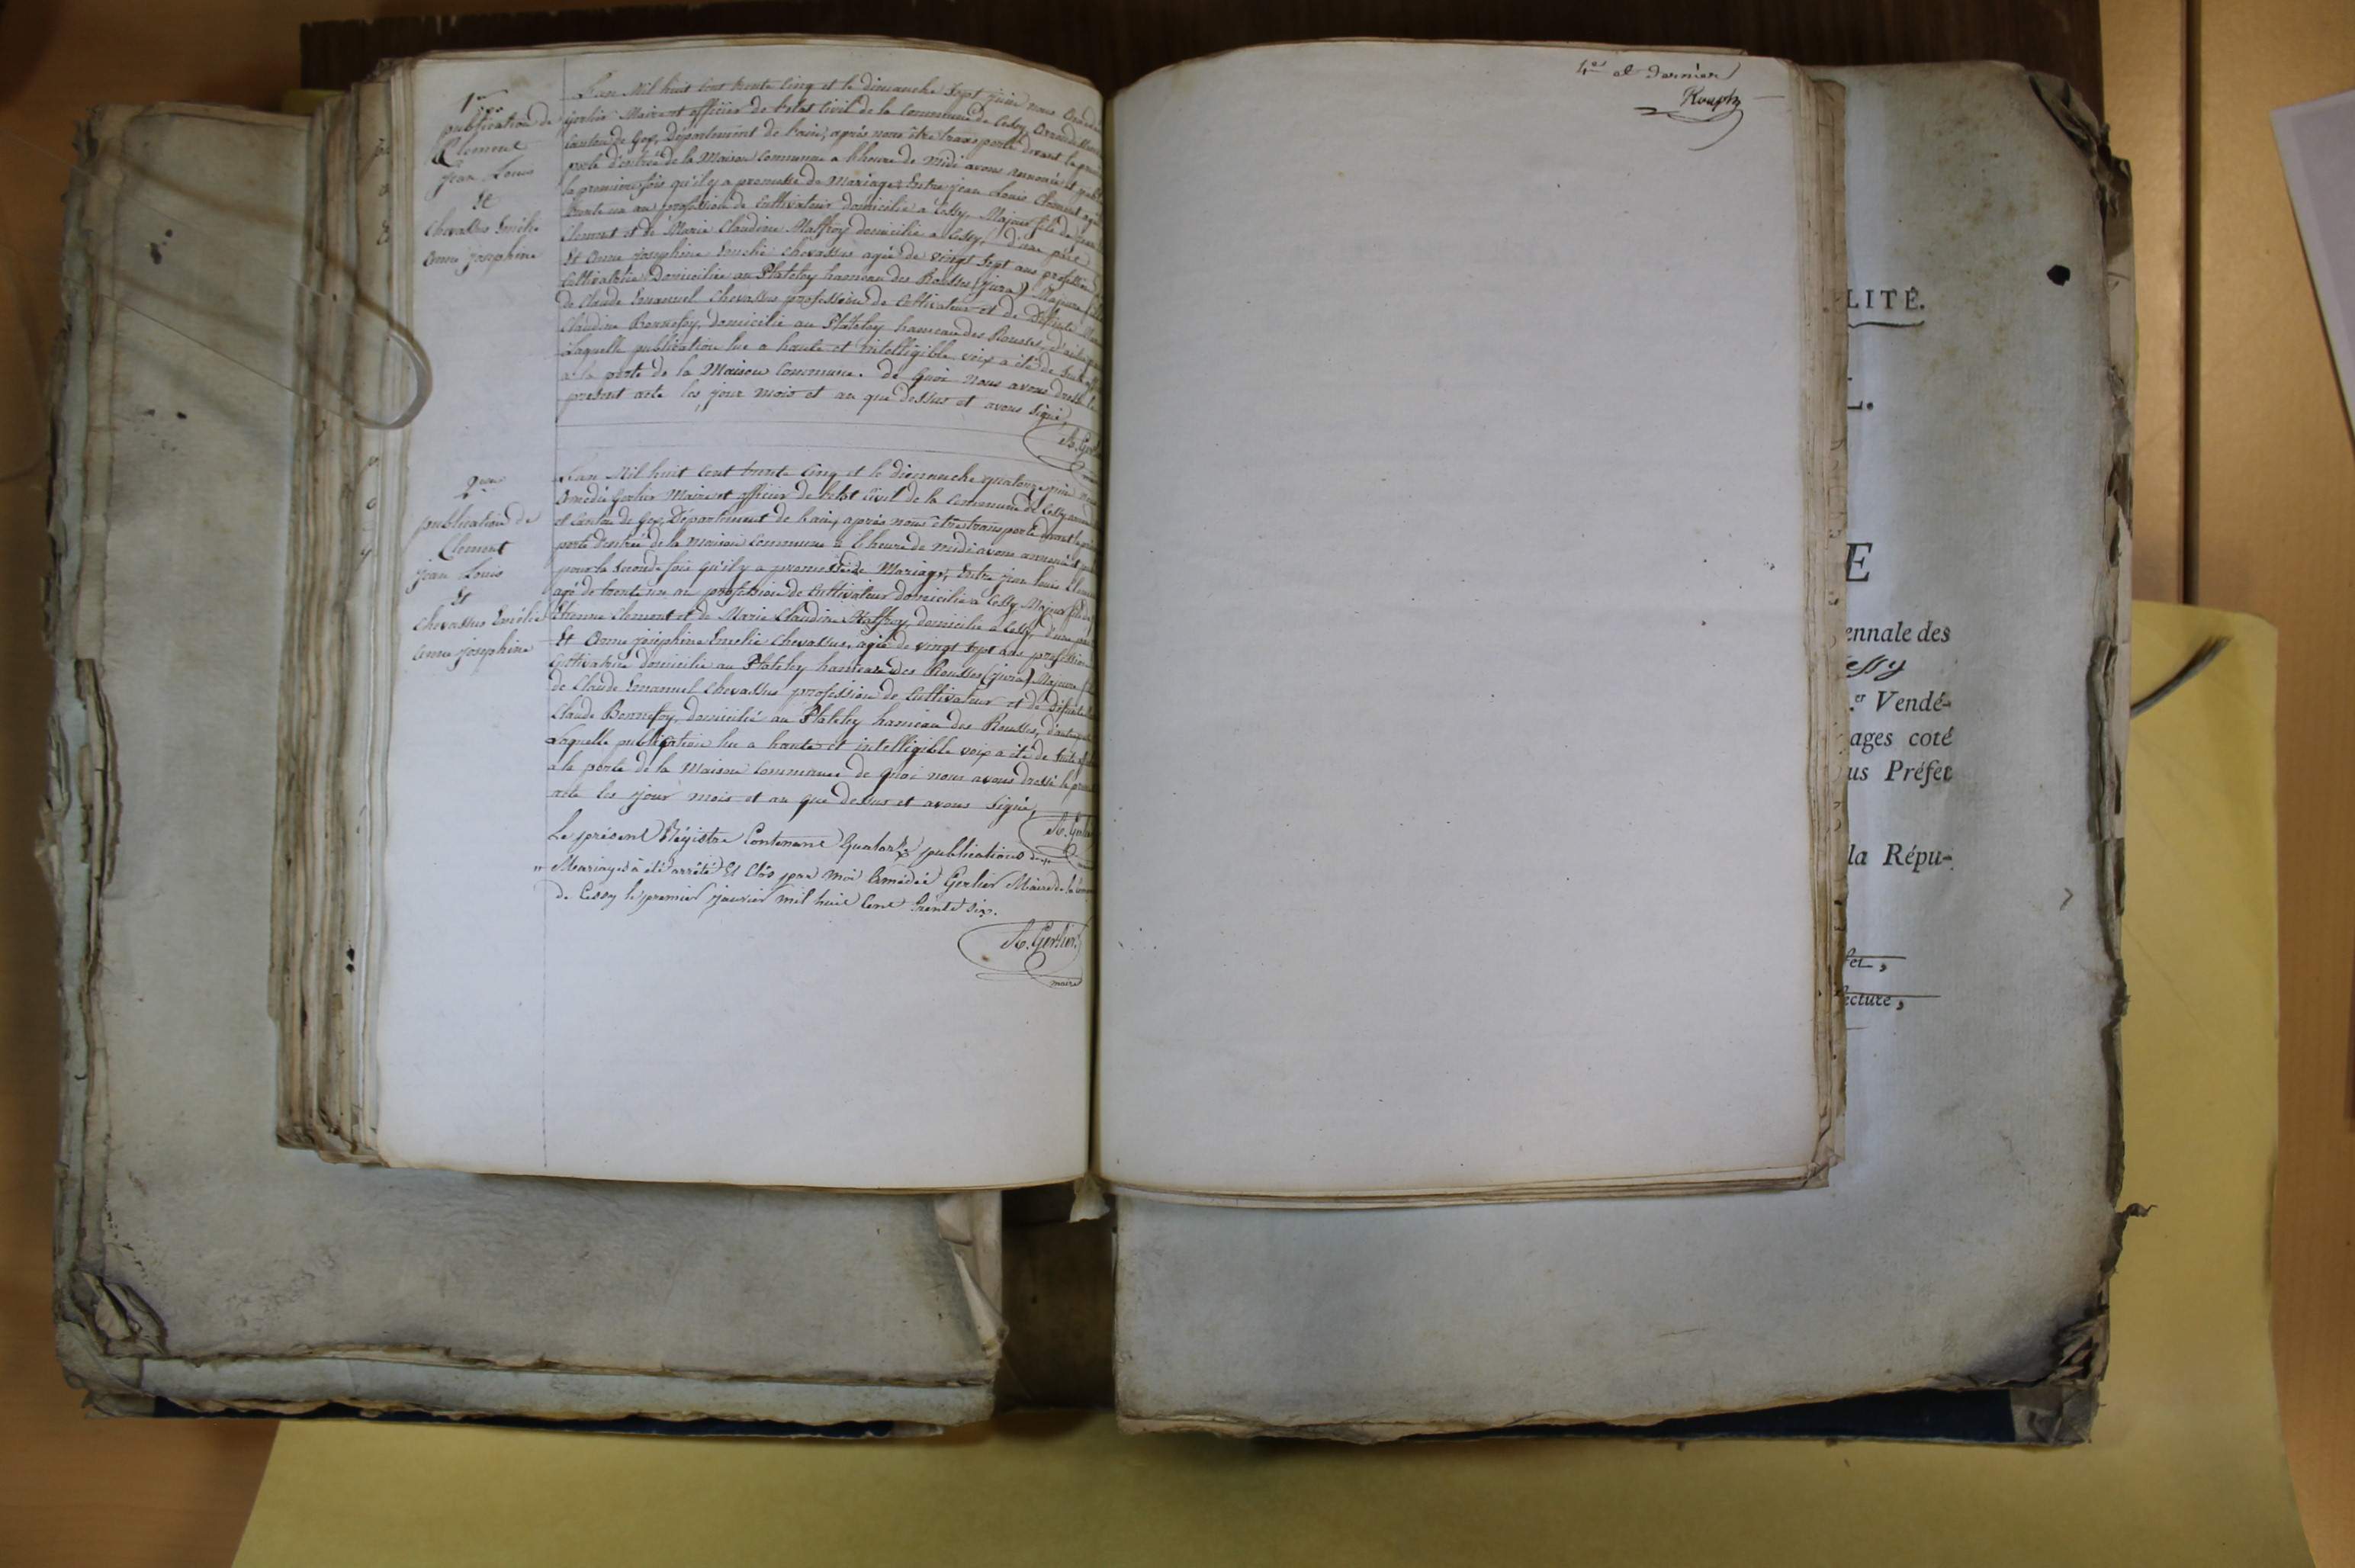 1ère
publication de
Clement
Jean Louis
Et
Chevassus Emélie
Anne Josephine
L'an Mil huit Cent trente Cinq et le dimanche Sept juin nous
Gerlier Maire et officier de l'etat Civil de la Commune de Cessy
Canton de Gex, Département de l'ain, après nous être transporté devant la
porte d'entrée de la Maison Commune a l'heure de midi avons annoncé et
la premiere fois qu'il y a promesse de Mariage, Entre jean Louis Clement
trente un an profession de Cultivateur domicilié a Cessy, Majeur fils de
Clement et de Marie Claudine Maffroy domicilié a Cessy, d'une part
Et Anne josephine Emelie Chevassus agée de vingt sept ans profession
Cultivatrice Domicilie au Plateley hameau des Rousses (jura) Majeure
de Claude Emanuel Chevassus profession de Cultivateur et de Défunte
Claudine Bonnefoy, domicilié au Plateley hameau des Rousses, d'autre
Laquelle publication lue a haute et intelligible voix a été de suite
a la porte de la Maison Commune. de quoi nous avons dressé le
présent acte les jour mois et an que dessus et avons signé
A. Gerlier
2eme
publication de
Clement
jean Louis
Et
Chevassus Emélie
Anne josephine
L'an Mil huit Cent trente Cinq et le dimanche quatorze juin
Amédé Gerlier Maire et officier de l'etat Civil de la Commune de Cessy
et Canton de Gex, Département de l'ain, après nous être transporté devant la
porte d'entrée de la maison Commune a l'heure de midi avons annoncé et
pour la Seconde fois qu'il y a promesse de Mariage, Entre jean Louis Clement
agé de trente un an profession de Cultivateur domicilié a Cessy Majeur fils de
Etienne Clement et de Marie Claudine Maffroy, domicilié a Cessy, d'une part
Et Anne joséphine Emelie Chevassus, agée de vingt sept ans profession
Cultivatrice domicilie au Plateley hameau des Rousses (jura) Majeure
de Claude Emanuel Chevassus profession de Cultivateur et de Défunte
Claude Bonnefoy, domicilié au Plateley hameau des Rousses, d'autre part
Laquelle publication lue a haute et intelligible voix a été de suite
a la porte de la Maison Commune de quoi nous avons dressé le
acte les jour mois et an que dessus et avons signé,
A. Gerlier
Le présent Régistre Contenant Quatorze publications de
Mariages à été arrêté Et Clôs par moi Amédée Gerlier Maire de la
de Cessy le premier janvier mil huit Cent trente six.
A. Gerlier
maire
et dernier
Rouph
LITÉ.
E
ennale des
essy
.er Vendé-
ages coté
us Préfet
la Répu-
fet,
ecture,